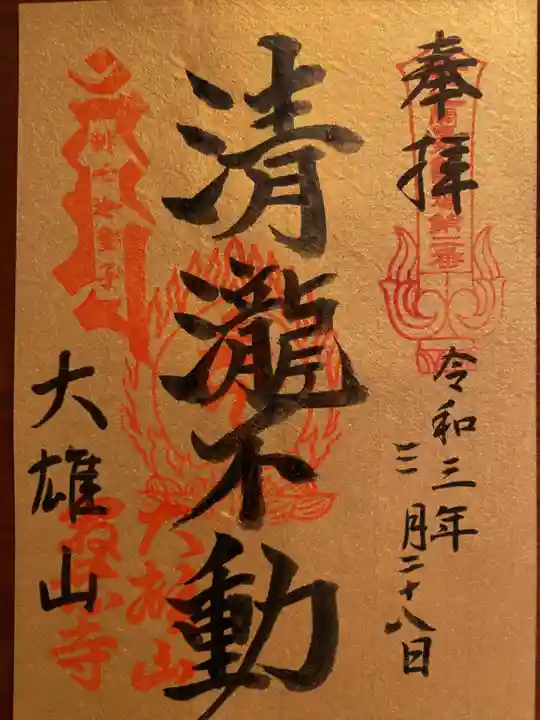 奉拝
令和三年
三月二十八日
清瀧不動
大雄山
大雄山
寺